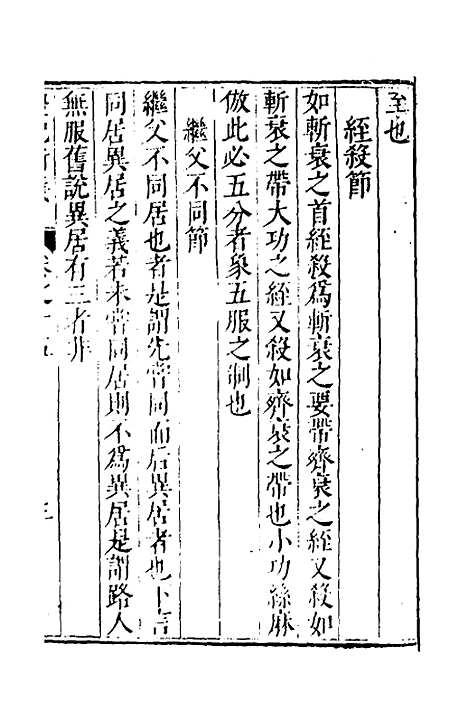 至也
絰殺節
如斬衰之首絰殺爲斬衰之要帶齊衰之絰又殺如
斬衰之帶大功之絰又殺如齊衰之帶也小功緦麻
倣此必五分者象五服之制也
繼父不同節
繼父不同居也者是謂先嘗同而后異居者也下言
同居異居之義若未嘗同居則不爲異居是謂路人
無服舊說異居有三者非
卷之十五 三